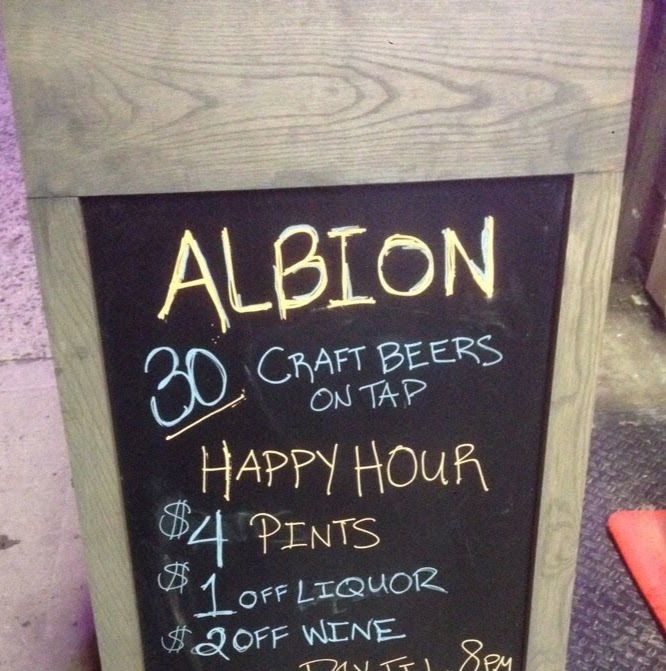 ALBION
30 CRAFT BEERS
ON TAP
HAPPY HOUR
$4 PINTS
$1 OFF LIQUOR
$2 OFF WINE
8PM